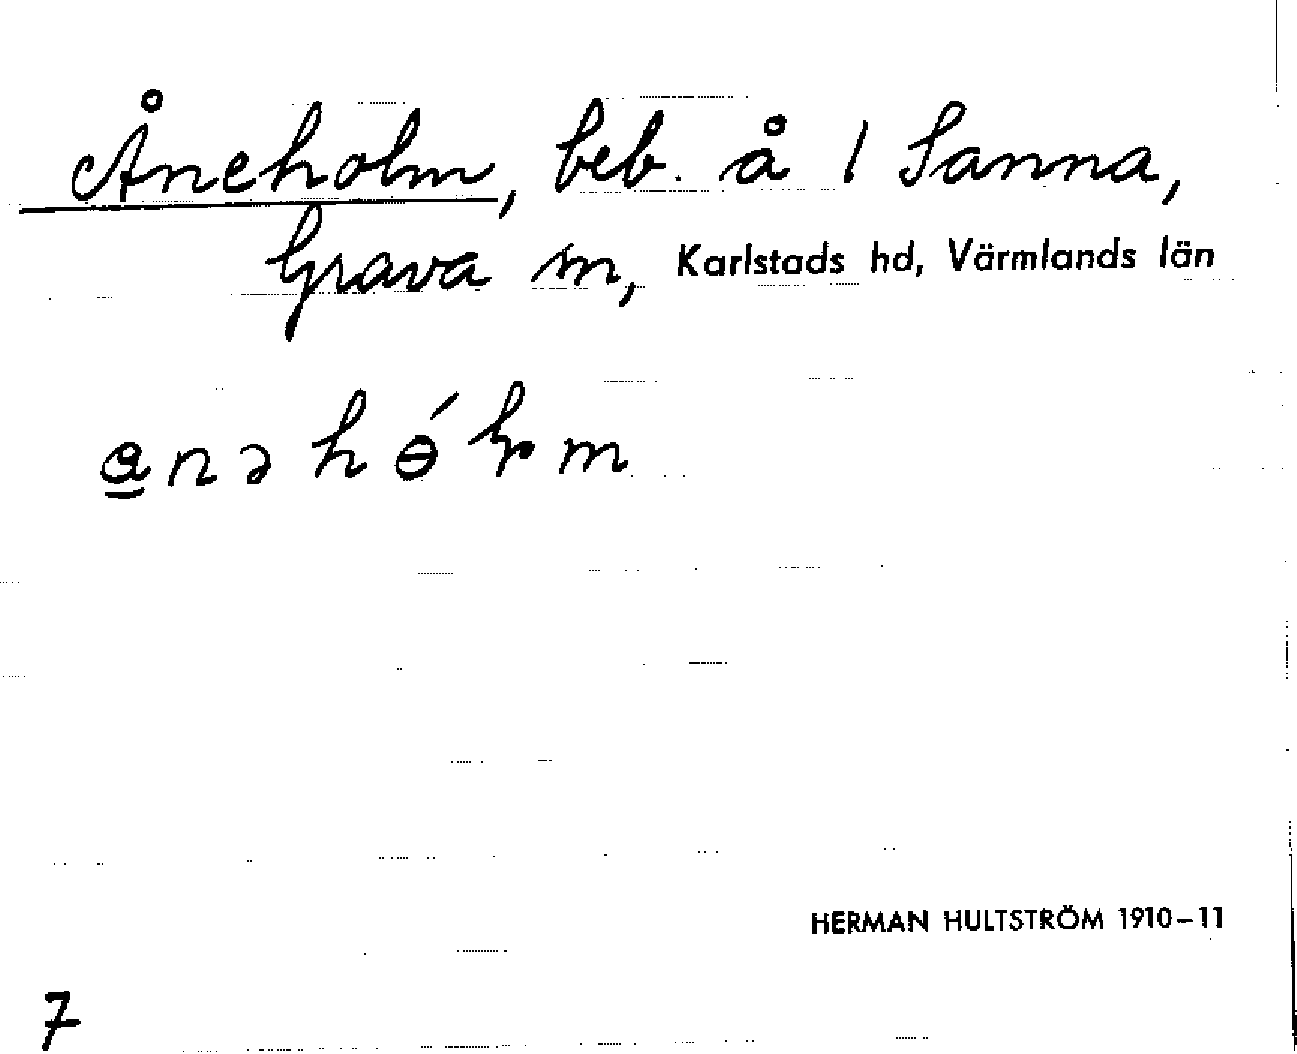 Åneholm, beb. å 1 Sanna,
Grava sn, Karlstads hd, Värmlands län
HERMAN HULTSTRÖM 1910–11
7